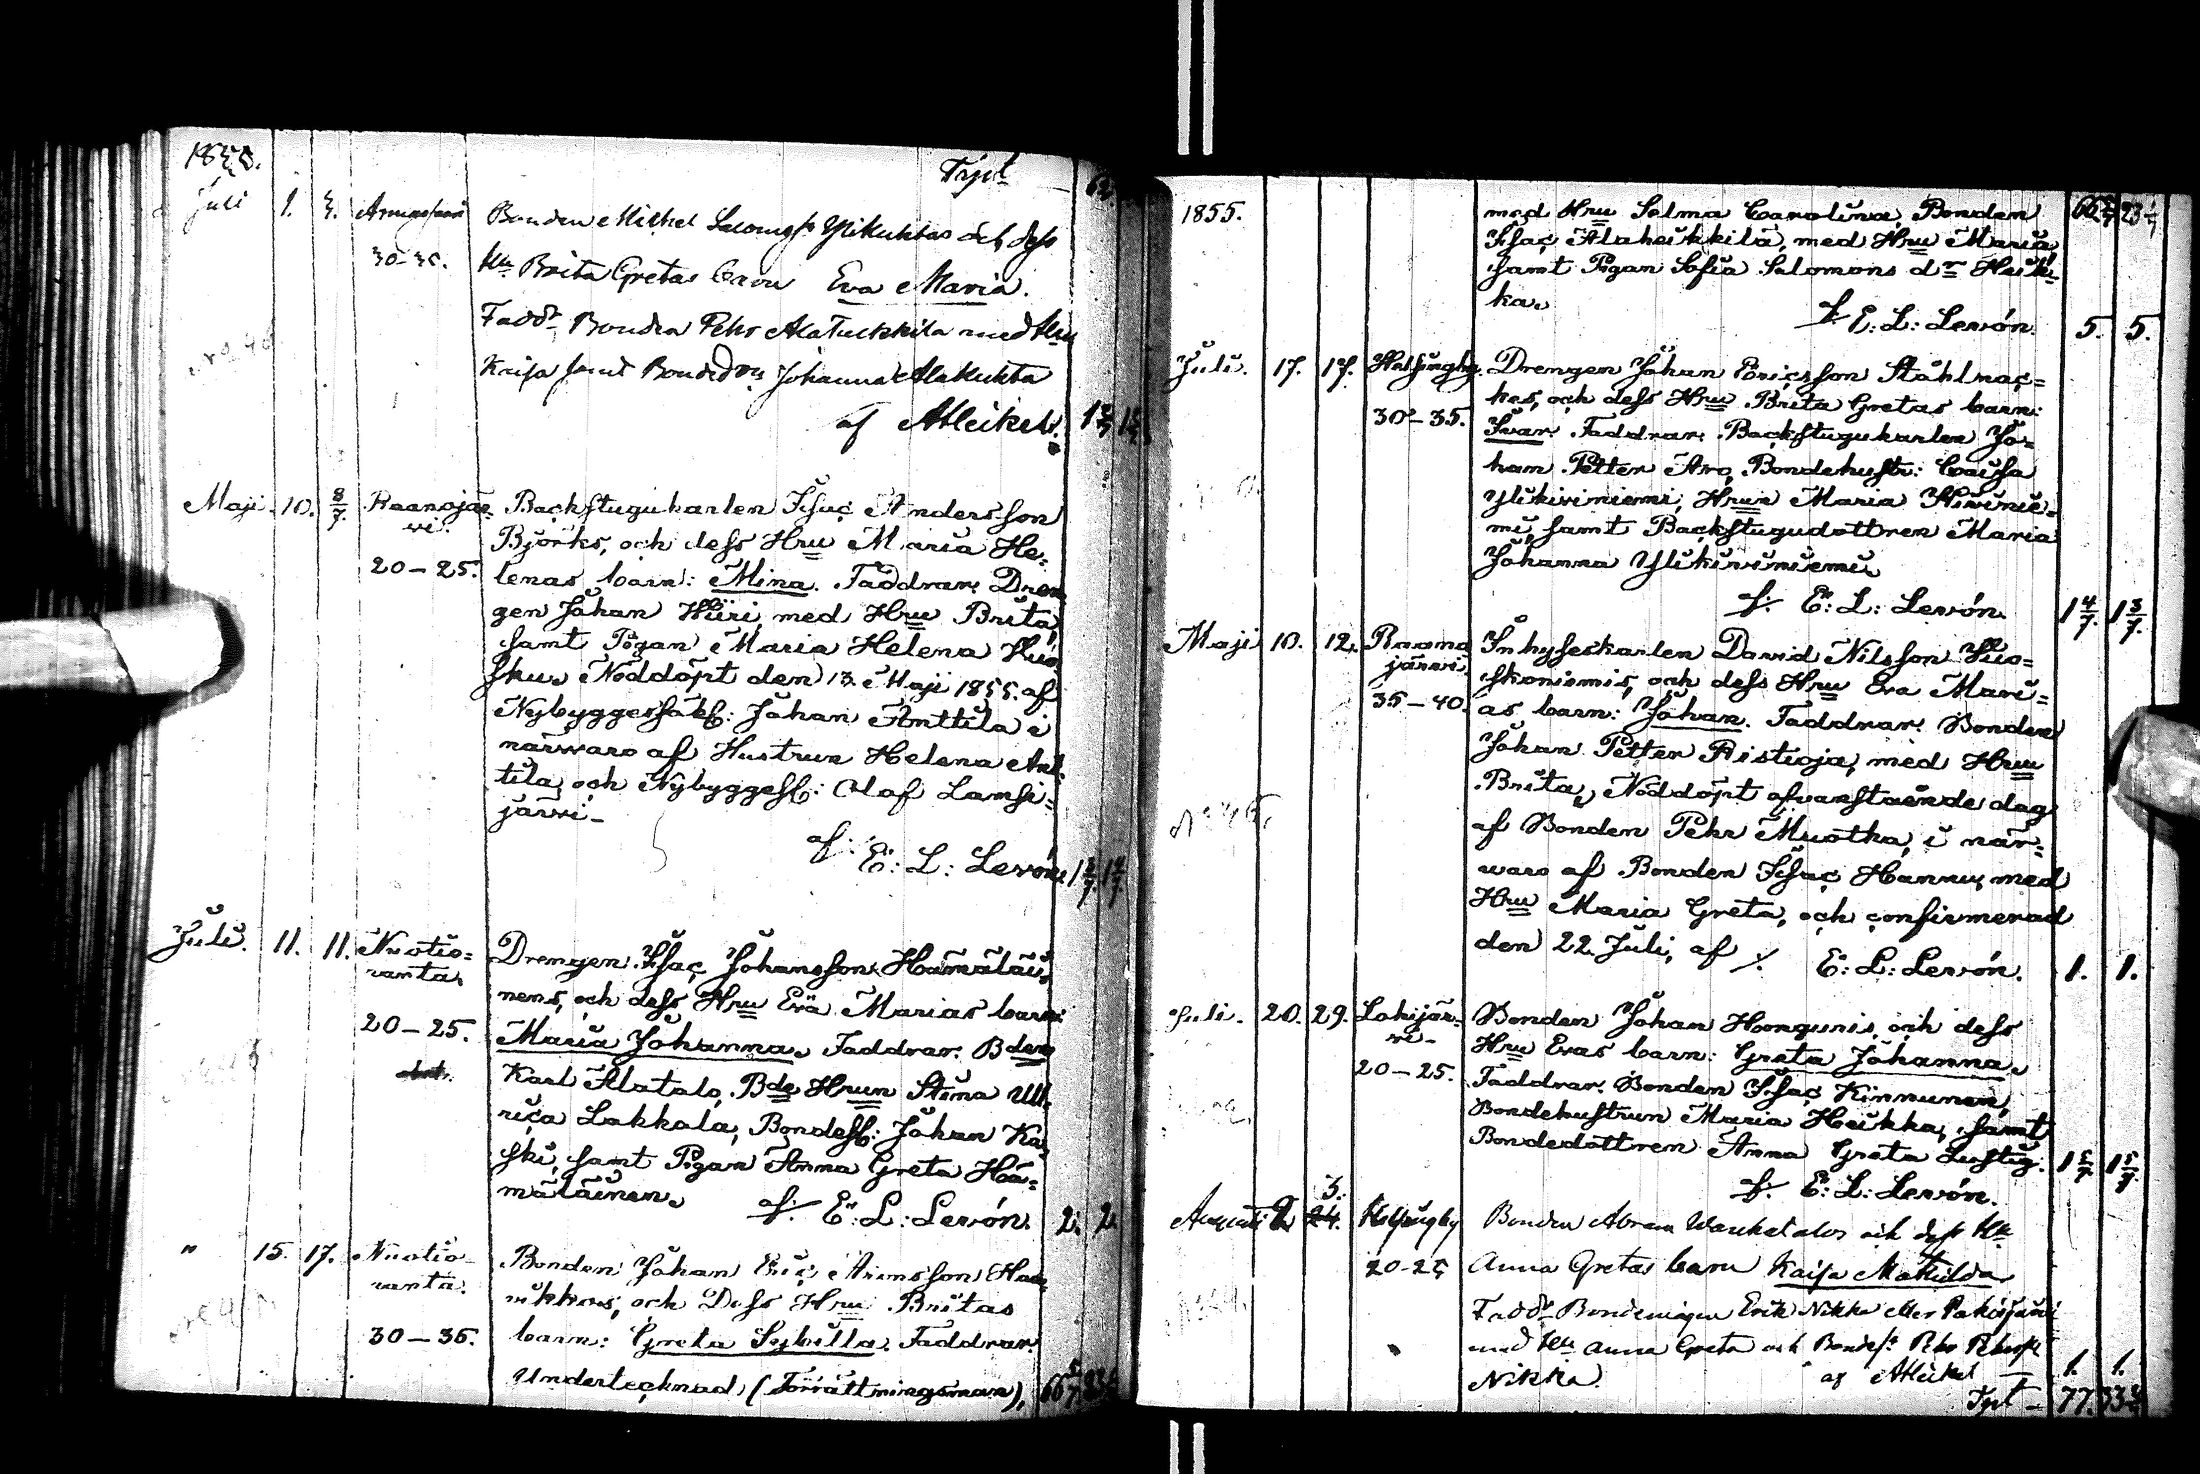 1855.
Trpt
Juli 1. 5.
30-35.
Bonden Michel Salomsn Ylikuktas och dess
Hu Brita Gretas barn Eva Maria.
Faddr Bonden Pehr Alatuckkila med Hu
Kaisa samt Bondedr Johanna Alakukta
af AHeikel.
Maji 10. 8/7. Raanojär-
vi.
20-25.
Backstugukarlen Isac Andersson
Björks, och dess Hru Maria He-
lenas barn: Mina. Faddrar: Dren
gen Johan Hiiri, med Hru Brita,
samt Pigan Maria Helena Huo
sku. Nöddöpt den 13. Maji 1855. af
Nybyggessöl: Johan Anttila i
närwaro af Hustrun Helena Ant-
tila, och Nybyggesl: Olof Lansi-
järwi-
af: E: L: Levón. 1 2/7. 1 2/7
Juli. 11. 11. Nuotio-
ranta.
20-25.
Drengen Isac Johansson Hämäläi-
nens, och dess Hru Eva Marias barn:
Maria Johanna. Faddrar: Bden
Karl Alatalo, Bde Hrun Stina Ul-
rica Lakkala, Bondesl: Johan Ka-
ski, samt Pigan Anna Greta Hä-
mäläinen.
af. E: L: Levón. 2. 2.
" 15. 17. Nuotio-
ranta.
30-35.
Bonden Johan Eric Aronsson
och Dess Hru Britas
barn: Greta Sybilla. Faddrar:
Undertecknad, (Förrättningsman),
1855.
med Hru Selma Carolina, Bonden
Isac Alaheikkilä, med Hru Maria,
samt Pigan Sofia Salomons dr Heik-
ka.
af E: L: Levón. 5. 5.
Juli. 17. 17. Helsingby.
30-35.
Drengen Johan Ericsson Stålnac-
kes, och dess Hru Brita Gretas barn:
Ivar. Faddrar: Backstugukarlen Jo-
han Petter Aro, Bondehustr: Caisa
Ylikiviniemi, Hrun Maria Kivinie-
mi, samt Backstugudottren Maria
Johanna Ylikiviniemi.
af: E: L: Levón. 1 4/7. 1 3/7.
Maji 10. 12. Raano
järvi.
35-40.
Inhyseskarlen David Nilsson Huo-
skoniemis, och dess Hru Eva Mari-
as barn: Johan. Faddrar: Bonden
Johan Petter Ristioja, med Hru
Brita, Nöddöpt ofvanstående dag
af Bonden Pehr Muotka, i när-
waro af Bonden Isac Hannu, med
Hru Maria Greta, och confirmerad
den 22. Juli, af E: L: Levón. 1. 1.
Juli. 20. 29. Lohijär-
vi-
20-25.
Bonden Johan Hoongunis, och dess
Hru Evas barn: Greta Johanna.
Faddrar: Bonden Isac Kinnunen,
Bondehustrun Maria Heikka, samt
Bondedottren Anna Greta Lustig.
af. E: L: Levón. 1 5/7 1 5/7
Augusti 2. 3. Helsingby
20-25
Bonden Abram Wanhatalos och dess Hu
Anna Gretas barn Kaisa Mathilda
Faddr Bondemågen Erik Nikka
med Hu Anna Greta och Bondes: Pehr Pehrsn
Nikka. af AHeikel 1. 1.
Trpt - 77.